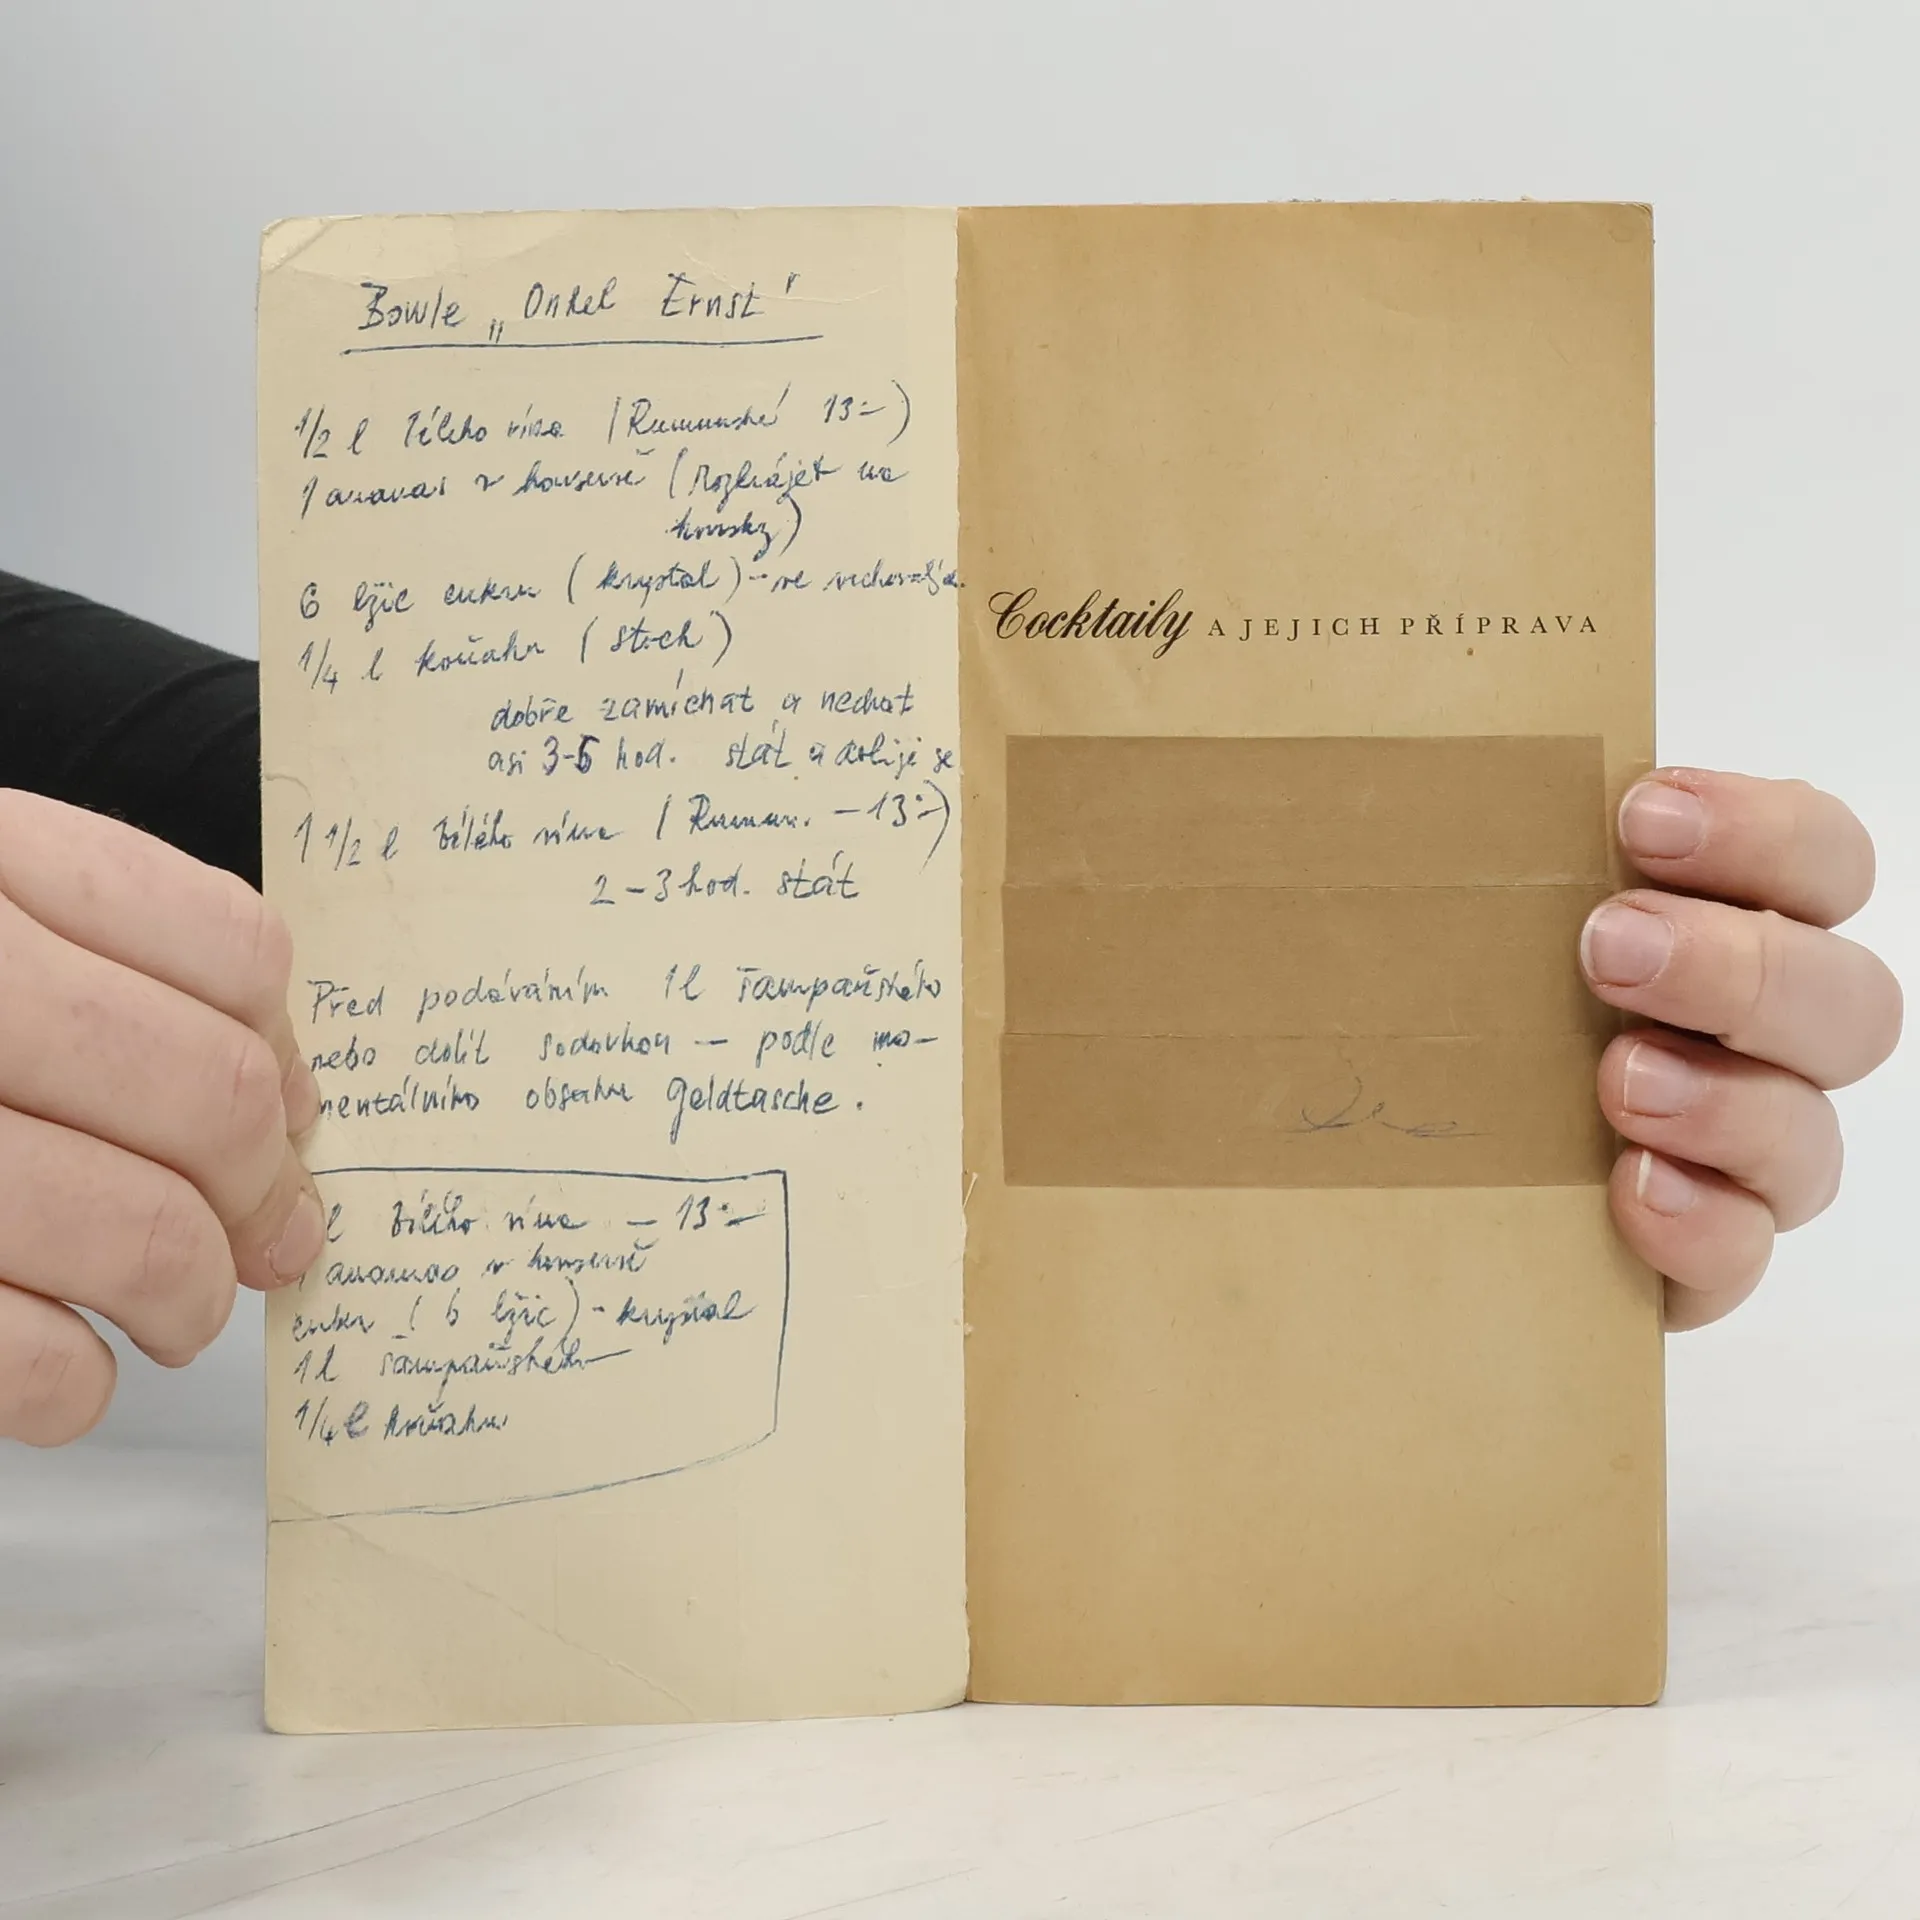 Bowle „Onkel Ernst"
1/2 l bílého vína (Rumunské 13:-)
1 ananas v konservě (rozkrájet na
kousky)
6 lžic cukru (krystal) - ne
1/4 l koňaku (stock)
dobře zamíchat a nechat
asi 3-5 hod. stát a dolije se
1 1/2 l bílého vína (Rumun. - 13:-)
2 - 3 hod. stát
Před podáváním 1 l šampaňského
nebo dolít sodovkou — podle mo-
mentálního obsahu Geldtasche.
l bílého vína — 13:-
1 ananas v konservě
cukr (6 lžic) - krystal
1 l šampaňského
1/4 l koňaku
Cocktaily A JEJICH PŘÍPRAVA